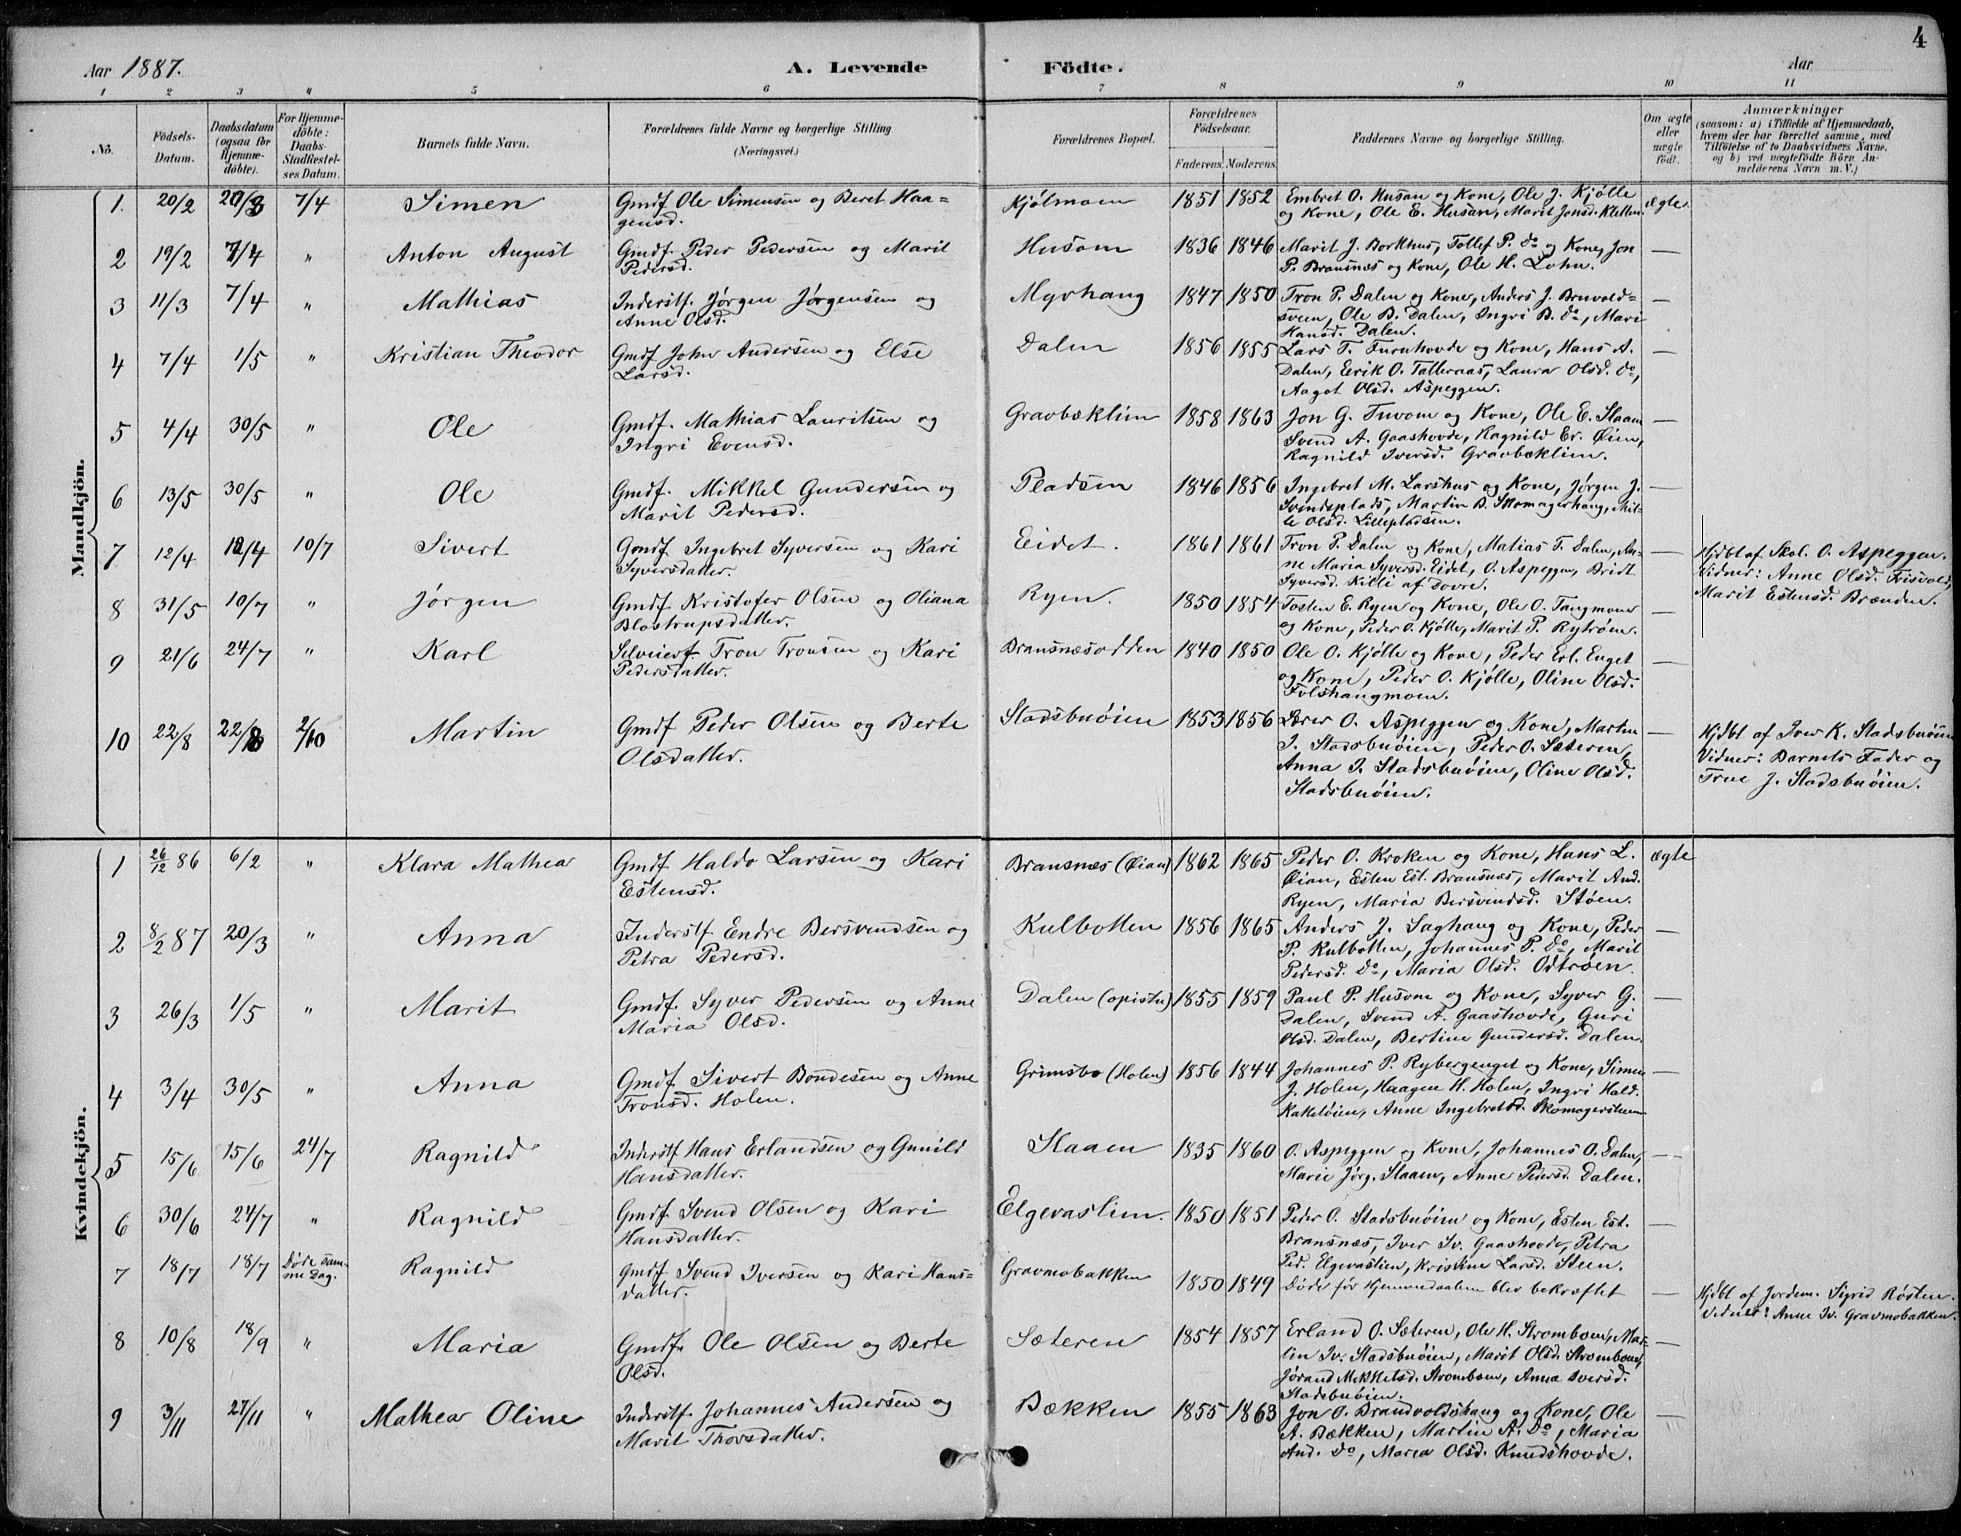 4
Aar 1887. A. Levende Födte. Aar
1 2 3 4 5 6 7 8 9 10 11
No. Födsels-Datum. Daabsdatum (ogsaa for Hjemme-döbte). For Hjemme-döbte: Daabs-Stadfæstel-ses Datum. Barnets fulde Navn. Forældrenes fulde Navne og borgerlige Stilling. (Næringsvei.) Forældrenes Bopæl. Forældrenes Födselsaar. Faderens. Moderens. Faddernes Navne og borgerlige Stilling. Om ægte eller uægte födt. Anmærkninger (saasom: a) i Tilfælde af Hjemmedaab, hvem der har forrettet samme, med Tilföielse af to Daabsvidners Navne, og b) ved uægtefödte Börn An-melderens Navn m. V.)
Mandkjön.
1. 20/2 20/3 7/4 Simen Gmdf Ole Simensen og Beret Haa=gensd. Kjølmoen 1851 1852 Embret O. Husan og Kone, Ole J. Kjølle og Kone, Ole E. Husan, Marit Jonsd. Kletten ægte
2 19/2 7/4 " Anton August Gmdf. Peder Pedersen og Marit Pedersd. Husom 1836 1846 Marit J. Borkhus, Tollef P. do og Kone, Jon P. Bransnæs og Kone, Ole H. Lohn. —
3 11/3 7/4 " Mathias Inderstf. Jørgen Jørgensen og Anne Olsd. Myrhaug 1847 1850 Tron P. Dalen og Kone, Anders J. Bruvold=sveen, Ole B. Dalen, Ingri B. do, Mari Hansd. Dalen. —
4 7/4 1/5 " Kristian Theodor Gmdf John Andersen og Else Larsd. Dalen 1856 1855 Lars T. Furuhovde og Kone, Hans A. Dalen, Eirik O. Talleraas, Laura Olsd. do, Aagot Olsd. Aspeggen. —
5 4/4 30/5 " Ole Gmdf. Mathias Lauritsen og Ingri Evensd. Gravbæklien 1858 1863 Jon G. Tuvom og Kone, Ole E. Slaaen Svend A. Gaashovde, Ragnild Er. Øien, Ragnild Iversd. Gravbæklien. —
6 13/5 30/5 " Ole Gmdf. Mikkel Gundersen og Marit Pedersd. Pladsen 1846 1856 Ingebret M. Larshus og Kone, Jørgen J. Svendsplads, Martin B. Skomagerhaug, Mil-le Olsd. Lillepladsen. —
7 12/4 12/4 10/7 Sivert Gmdf Ingebret Syversen og Kari Syversdatter. Eidet. 1861 1861 Tron P. Dalen og Kone, Matias T. Dalen, An-ne Maria Syversd. Eidet, O. Aspeggen, Bridt Syversd. Killi af Dovre. — Hjdbt af Skol. O. Aspeggen. Vidner: Anne Olsd. Frisvold, Marit Estensd. Brænden.
8 31/5 10/7 " Jørgen Gmdf Kristofer Olsen og Oliana Blostrupsdatter. Ryen. 1850 1854 Tosten E. Ryen og Kone, Ole O. Tangmoen og Kone, Peder O. Kjølle, Marit P. Rytrøen. —
9 21/6 24/7 " Karl Selveierf. Tron Tronsen og Kari Pedersdatter. Bransnæsodden 1840 1850 Ole O. Kjølle og Kone, Peder Erl. Enget og Kone, Peder O. Kjølle, Oline Olsd. Folshaugmoen. —
10 22/8 22/8 2/10 Martin Gmdf Peder Olsen og Berte Olsdatter. Stadsbuøien 1853 1856 Lærer O. Aspeggen og Kone, Martin I. Stadsbuøien, Peder O. Sæteren, Anna I. Stadsbuøien, Oline Olsd. Stadsbuøien. — Hjdbt af Iver K. Stadsbuøien Vidner: Barnets Fader og True J. Stadsbuøien.
Kvindekjön.
1 26/12 86 6/2 " Klara Mathea Gmdf Haldo Larsen og Kari Estensd. Bransnæs (Øian) 1862 1865 Peder O. Kroken og Kone, Hans L. Øian, Esten Est. Bransnæs, Marit And. Ryen, Maria Bersvendsd. Støen. ægte
2 8/2 87 20/3 " Anna Inderstf. Endre Bersvendsen og Petra Pedersd. Kulbotten 1856 1865 Anders J. Saghaug og Kone, Peder P. Kulbotten, Johannes P. Do, Marit Pedersd. Do, Maria Olsd. Odtrøen. —
3 26/3 1/5 " Marit Gmdf. Syver Pedersen og Anne Maria Olsd. Dalen (opistu) 1855 1859 Paul P. Husom og Kone, Syver G. Dalen, Svend A. Gaashovde, Guri Olsd. Dalen, Bertine Gundersd. Dalen. —
4 3/4 30/5 " Anna Gmdf Sivert Bondesen og Anne Tronsd. Holen. Grimsbo (Holen) 1856 1844 Johannes P. Rybergenget og Kone, Simen J. Holen, Haagen H. Holen, Ingri Hald. Kakeløien, Anne Ingebretsd. Skomagersteen —
5 15/6 15/6 24/7 Ragnild Inderstf Hans Erlandsen og Gunild Hansdatter. Slaaen 1835 1860 O. Aspeggen og Kone, Johannes O. Dalen, Marie Jørg. Slaaen, Anne Pedersd. Dalen. —
6 30/6 24/7 " Ragnild Gmdf. Svend Olsen og Kari Hansdatter. Elgevaslien. 1850 1851 Peder O. Stadsbuøien og Kone, Esten Est. Bransnæs, Iver Iv. Gaashovde, Petra Ped. Elgevaslien, Kristine Larsd. Steen. —
7 18/7 18/7 Døde sam-me Dag. Ragnild Gmdf Svend Iversen og Kari Hans=datter. Gravmobakken 1850 1849 Døde før Hjemmedaaben blev bekræftet — Hjdbt af Jordem. Sigrid Røsten. Vidner: Anne Iv. Gravmobakken.
8 10/8 18/9 " Maria Gmdf. Ole Olsen og Berte Olsd. Sæteren 1854 1857 Erland O. Sæteren, Ole H. Strømboen, Mar-tin Iv. Stadsbuøien, Marit Olsd. Strømboen, Jørand Mikkelsd. Strømboen, Anne Iversd. Stadsbuøien. —
9 3/11 27/11 " Mathea Oline Inderstf. Johannes Andersen og Marit Thorsdatter. Bækken 1855 1863 Jon O. Brandvoldshaug og Kone, Ole A. Bækken, Martin A. Do, Maria And. Do, Maria Olsd. Knudshovde. —